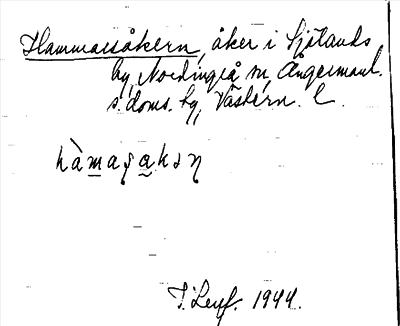 Hammarsåkern, åker i Sjölands
by, Nordingrå sn, Ångermanl.
s. doms. hg, Västern. l.
hàmaṣakən
1944.